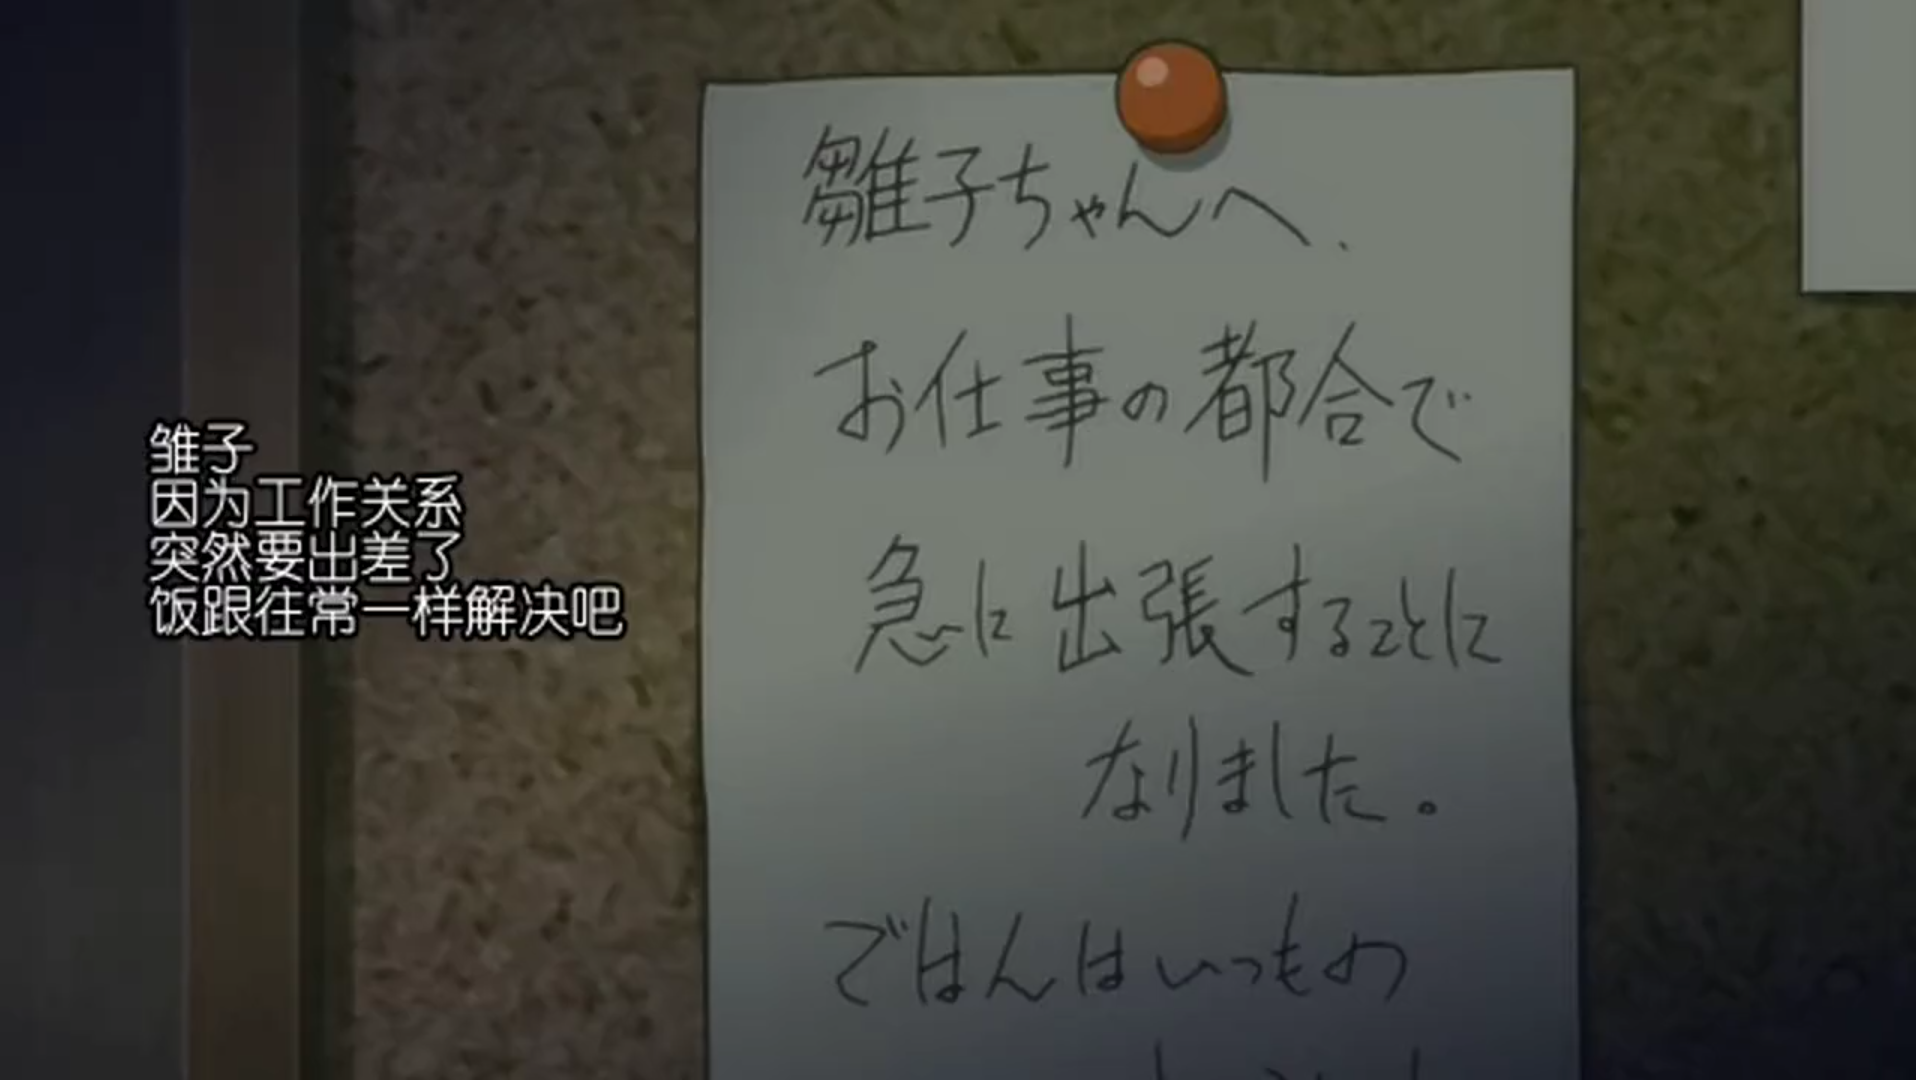 雏子
因为工作关系
突然要出差了
饭跟往常一样解决吧
雛子ちゃんへ、
お仕事の都合で
急に出張することに
なりました。
ごはんはいつもの